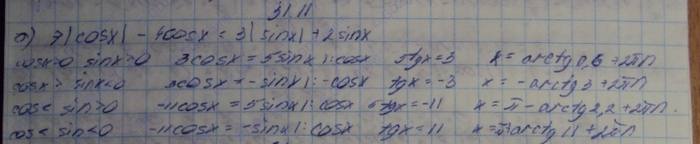 31.11
а) 7|cosx| - 4cosx = 3|sinx| + 2sinx
cosx>0 sinx>0 3cosx = 5sinx |:cosx 5tgx=3 x = arctg 0,6 + 2πn
cosx> sinx<0 3cosx = -sinx |:-cosx tgx=-3 x = -arctg3 + 2πn
cos< sin>0 -11cosx = 5sinx |:cosx 5tgx=-11 x = π-arctg2,2 + 2πn
cos< sin<0 -11cosx = -sinx |:cosx tgx=11 x=π+arctg 11 + 2πn